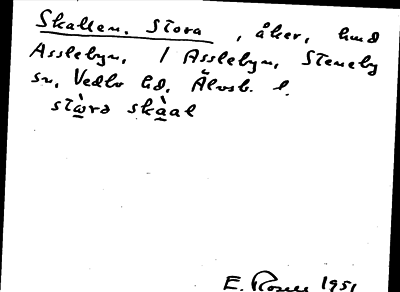 Skallen. Stora, åker, hmd
Asslebyn, / Asslebyn, Steneby
sn, Vedbo hd, Älvsb. l.
stὼrə skàal
E. Rosell 1951